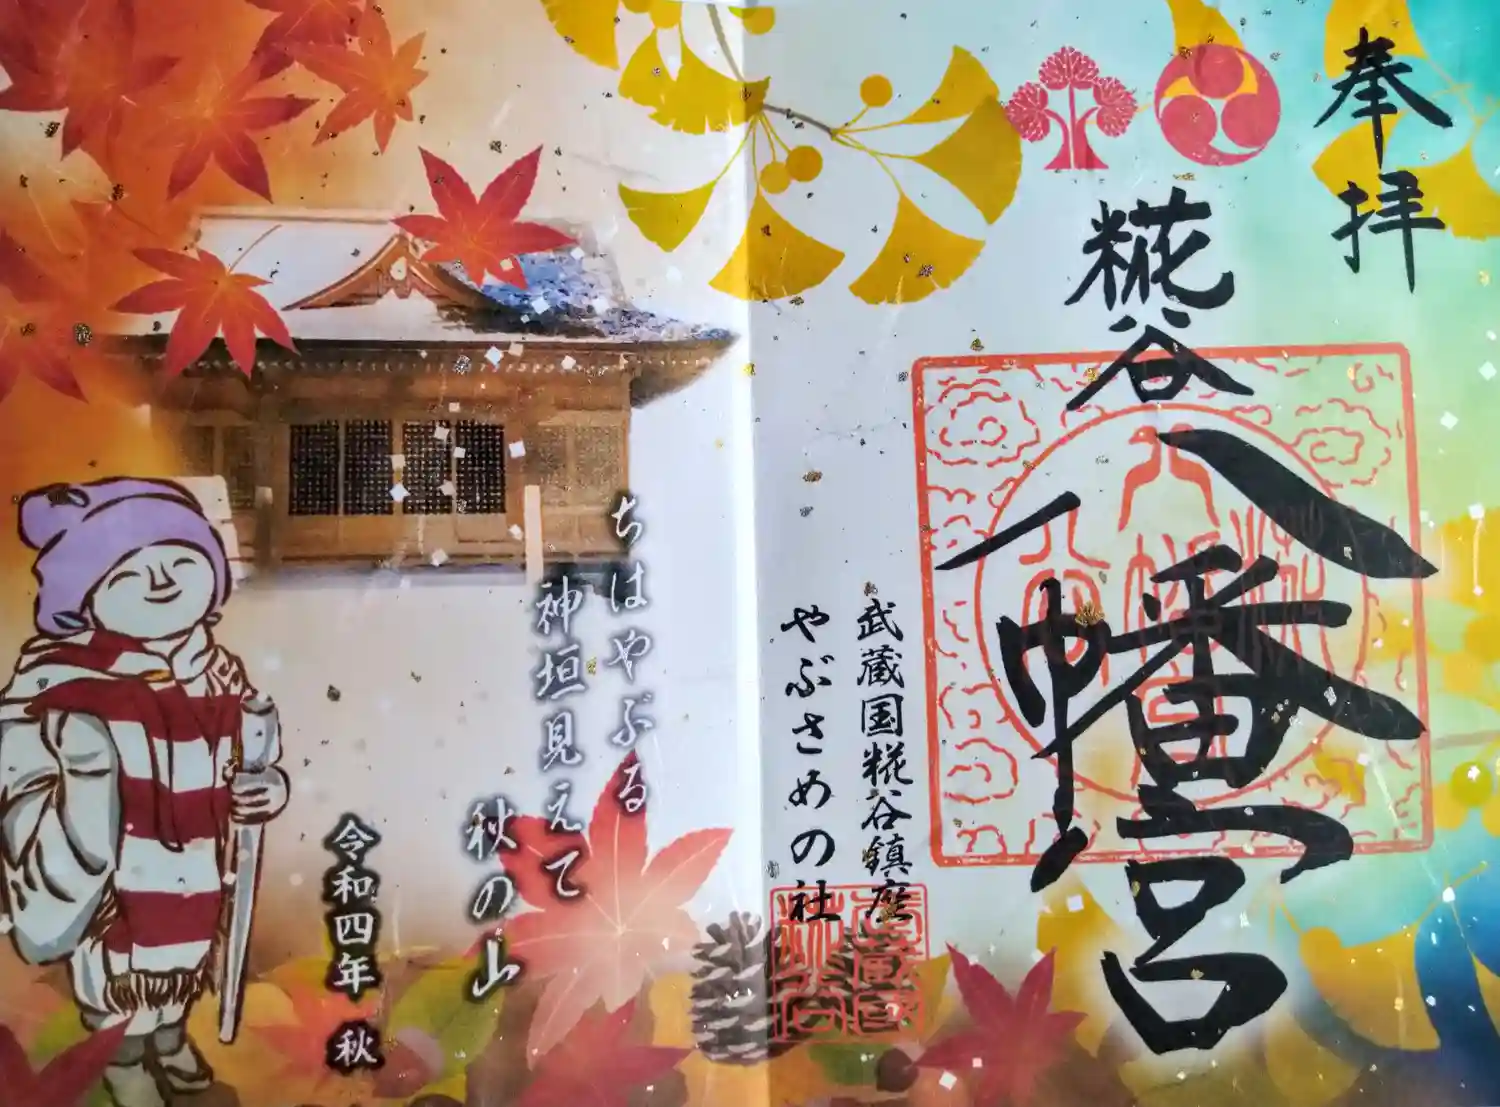 奉拝
糀谷
八幡宮
武蔵国糀谷鎮座
やぶさめの社
ちはやぶる
神垣見えて
秋の山
令和四年 秋